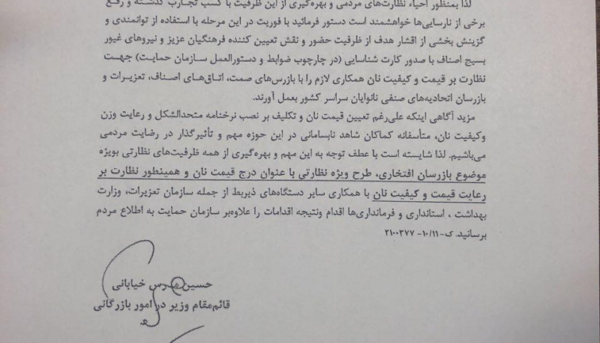 لذا بمنظور احیاء نظارت‌های مردمی و بهره‌گیری از این ظرفیت با کسب تجارب گذشته و رفع
برخی از نارسایی‌ها خواهشمند است دستور فرمائید با فوریت در این مرحله با استفاده از توانمندی و
گزینش بخشی از اقشار هدف از ظرفیت حضور و نقش تعیین کننده فرهنگیان عزیز و نیروهای غیور
بسیج اصناف با صدور کارت شناسایی (در چارچوب ضوابط و دستورالعمل سازمان حمایت) جهت
نظارت بر قیمت و کیفیت نان همکاری لازم را با بازرس‌های صمت، اتاق‌های اصناف، تعزیرات و
بازرسان اتحادیه‌های صنفی نانوایان سراسر کشور بعمل آورند.
مزید آگاهی اینکه علی‌رغم تعیین قیمت نان و تکلیف بر نصب نرخنامه متحدالشکل و رعایت وزن
وکیفیت نان، متأسفانه کماکان شاهد نابسامانی در این حوزه مهم و تأثیرگذار در رضایت مردمی
می‌باشیم. لذا شایسته است با عطف توجه به این مهم و بهره‌گیری از همه ظرفیت‌های نظارتی بویژه
موضوع بازرسان افتخاری، طرح ویژه نظارتی با عنوان درج قیمت نان و همینطور نظارت بر
رعایت قیمت و کیفیت نان با همکاری سایر دستگاه‌های ذیربط از جمله سازمان تعزیرات، وزارت
بهداشت ، استانداری و فرمانداری‌ها اقدام ونتیجه اقدامات را علاوه‌بر سازمان حمایت به اطلاع مردم
برسانید. ک-۱۰/۱۱- ۲۱۰۰۳۷۷
حسین مدرس خیابانی
قائم‌مقام وزیر در امور بازرگانی